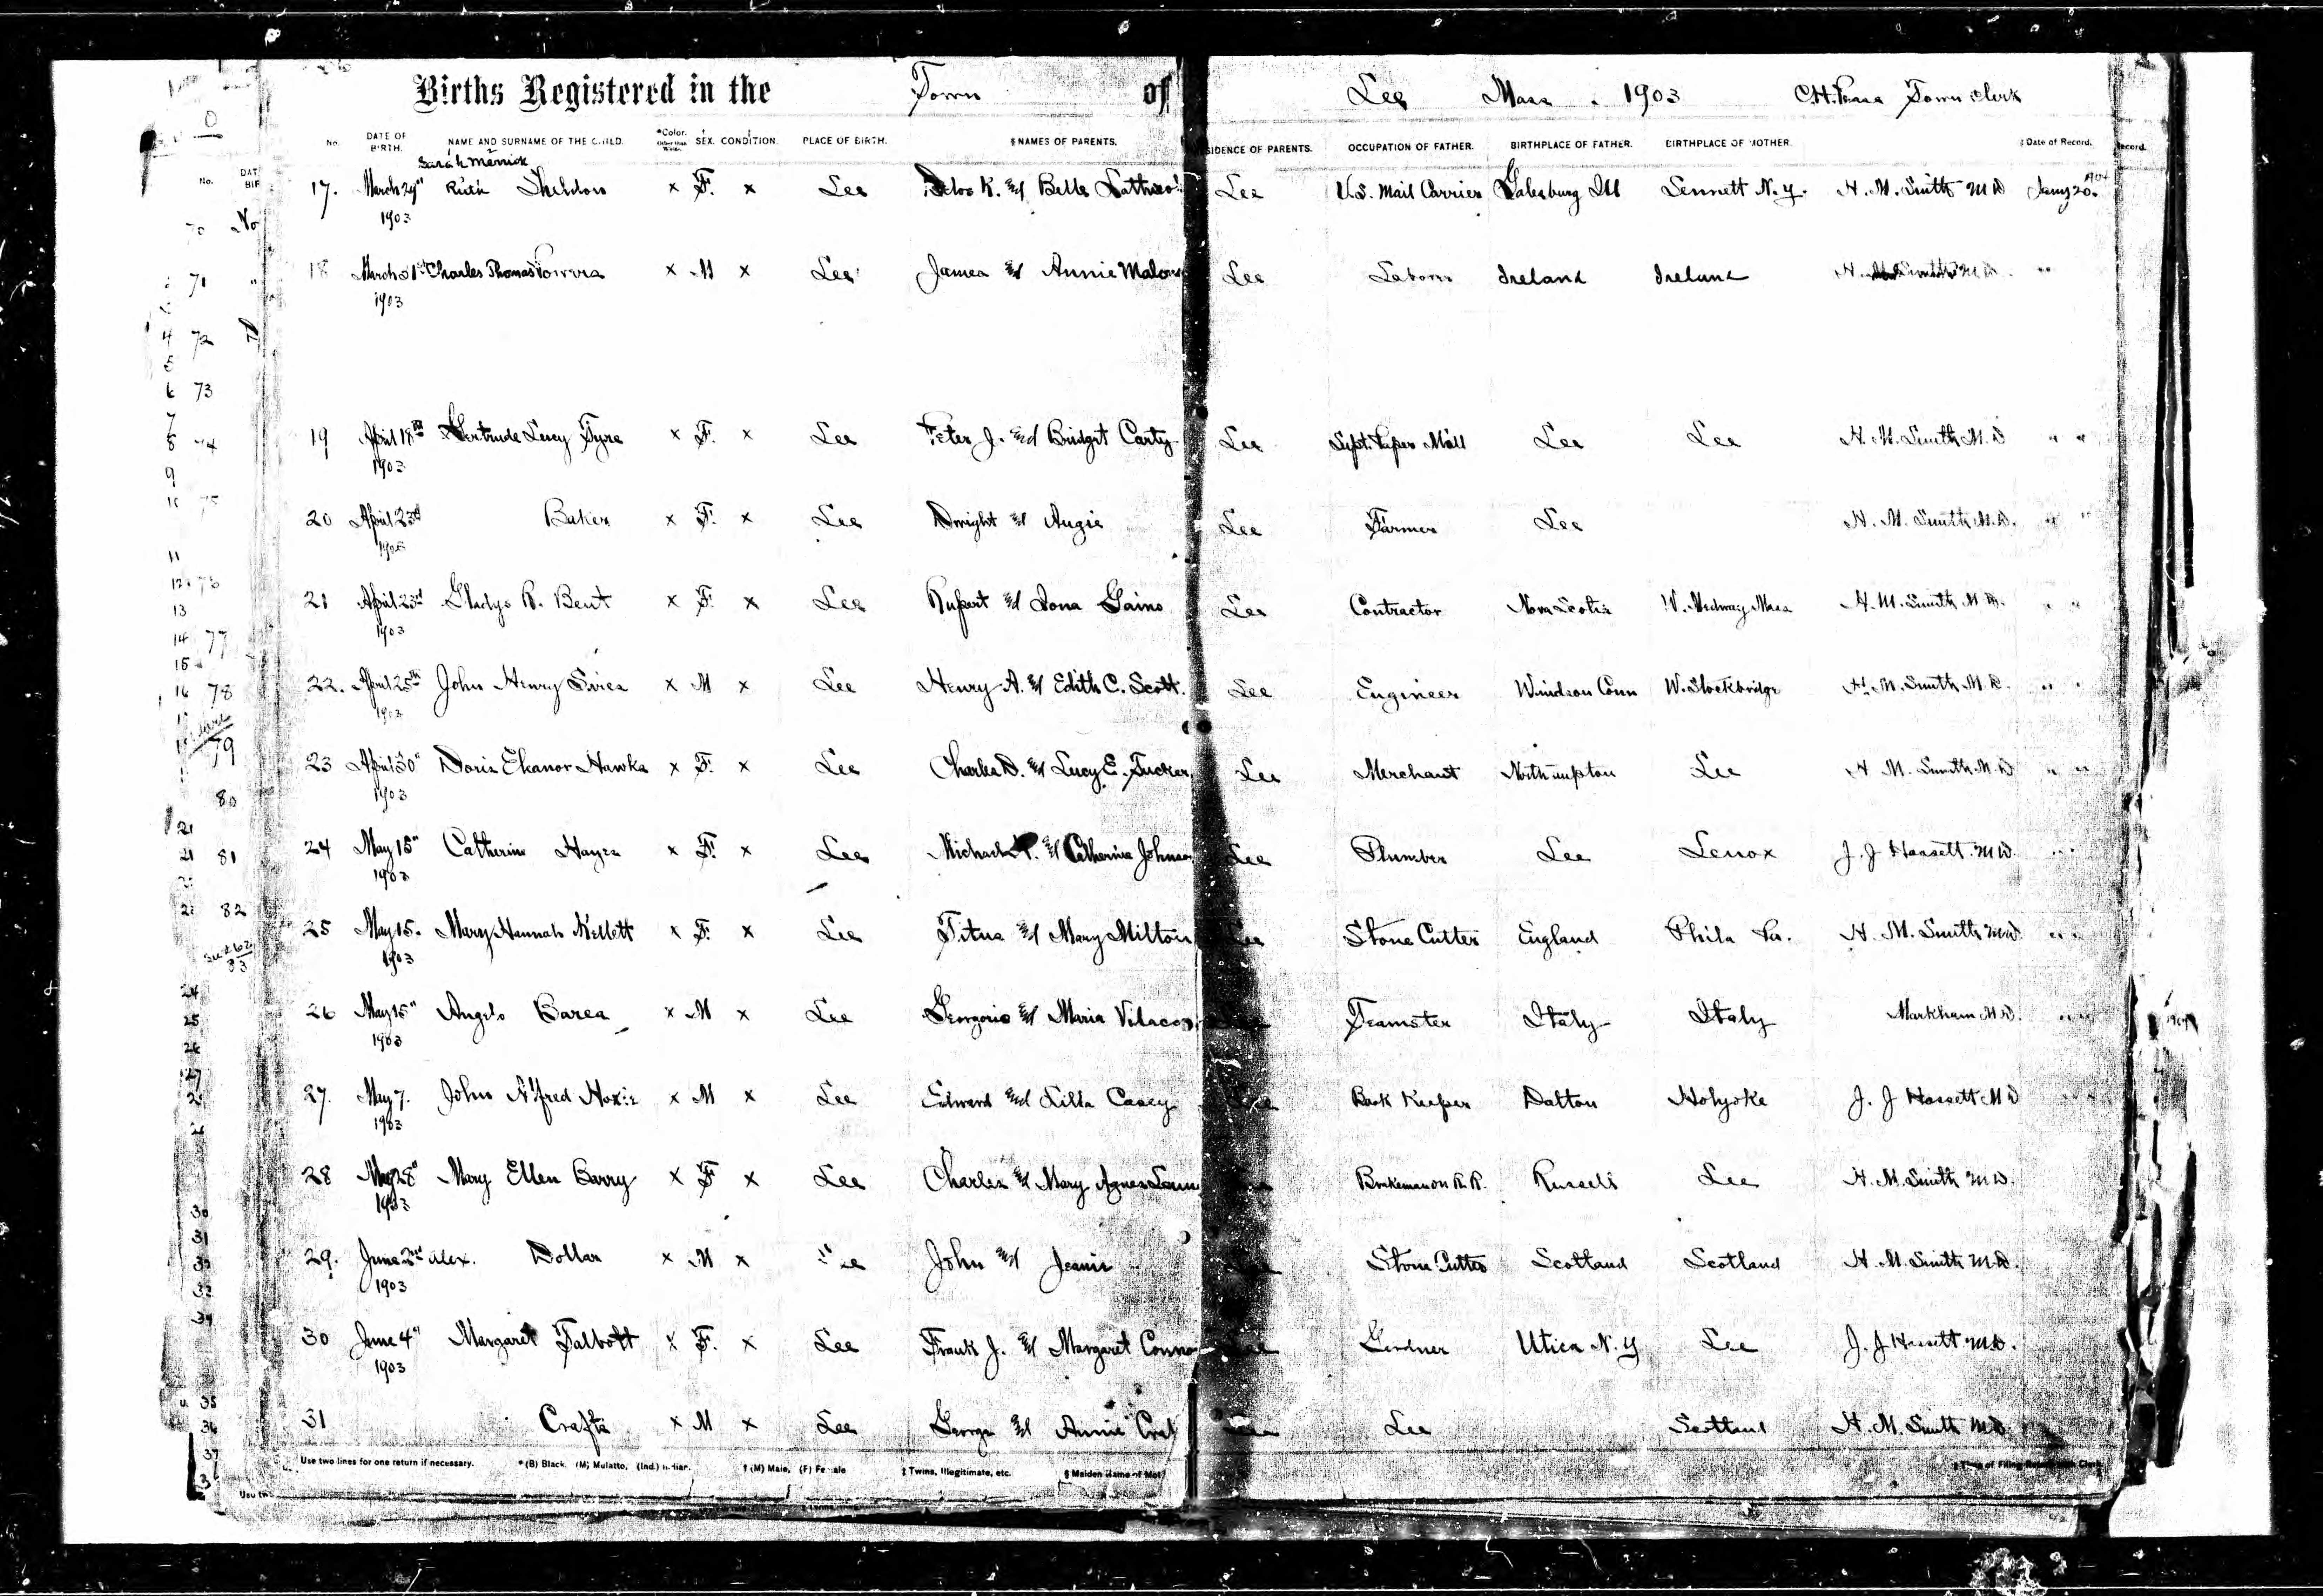 Births Registered in the Town of Lee Mass. 1903 Town Clerk
No. DATE OF BIRTH. NAME AND SURNAME OF THE CHILD. *Color. Other than White. SEX. CONDITION. PLACE OF BIRTH. §NAMES OF PARENTS. RESIDENCE OF PARENTS. OCCUPATION OF FATHER. BIRTHPLACE OF FATHER. BIRTHPLACE OF MOTHER. Date of Record.
Sarah Merrick
17. March 29" Ruth Sheldon x F. x Lee K. and Belle Lee U.S. Mail Carrier Galesburg Ill Sennett N.Y. H. M. Smith M D Jany 20. 1904
1903
18 March 31st Charles Thomas Powers x M x Lee James and Annie Lee Labor Ireland Ireland H. Smith M.D. "
1903
19 April 18th Gertrude Lucy x F. x Lee Peter J. and Bridget Carty Lee Supt. Paper Mill Lee Lee H. M. Smith M. D " "
1903
20 April 23d Baker x F. x Lee Dwight and Angie Lee Farmer Lee H. M. Smith M.D. " "
1903
21 April 23rd Gladys R. Bent x F. x Lee Rupert and Iona Gains Lee Contractor Nova Scotia W. Medway Mass H. M. Smith M. D. " "
1903
22. April 25th John Henry x M x Lee Henry A. and Edith C. Scott. Lee Engineer Windsor Conn W. Stockbridge H. M. Smith M. D. " "
1903
23 April 30" Doris Eleanor Hawks x F. x Lee Charles D. and Lucy E. Tucker Lee Merchant Northampton Lee H. M. Smith M. D " "
1903
24 May 15" Catherine Hayes x F. x Lee Michael P. and Catherine Johnson Lee Plumber Lee Lenox J. J Hassett. M D. " "
1903
25 May 15. Mary Hannah Kellett x F. x Lee Titus and Mary Milton Lee Stone Cutter England Phila Pa. H. M. Smith M.D. " "
1903
26 May 15" Angelo Barea x M x Lee and Maria Teamster Italy Italy Markham M.D. " "
1903
27. May 7. John Alfred Hoxie x M x Lee Edward and Lilla Casey Lee Book Keeper Dalton Holyoke J. J Hassett M D
1903
28 May 28" Mary Ellen Barry x F x Lee Charles and Mary Agnes Brakeman on R.R. Russell Lee H. M. Smith M D.
1903
29. June 2nd Alex. Dollar x M x Lee John and Jeanie Stone Cutter Scotland Scotland H. M. Smith M.D.
1903
30 June 4" Margaret Talbott x F. x Lee Frank J. and Margaret Connor Lee Gardner Utica N.Y Lee J. J Hassett M.D.
1903
31 Crafts x M x Lee George and Annie Lee Scotland H. M. Smith M.D.
Use two lines for one return if necessary. *(B) Black. (M) Mulatto, (Ind.) Indian. † (M) Male, (F) Female ‡ Twins, Illegitimate, etc. § Maiden Name of Mot